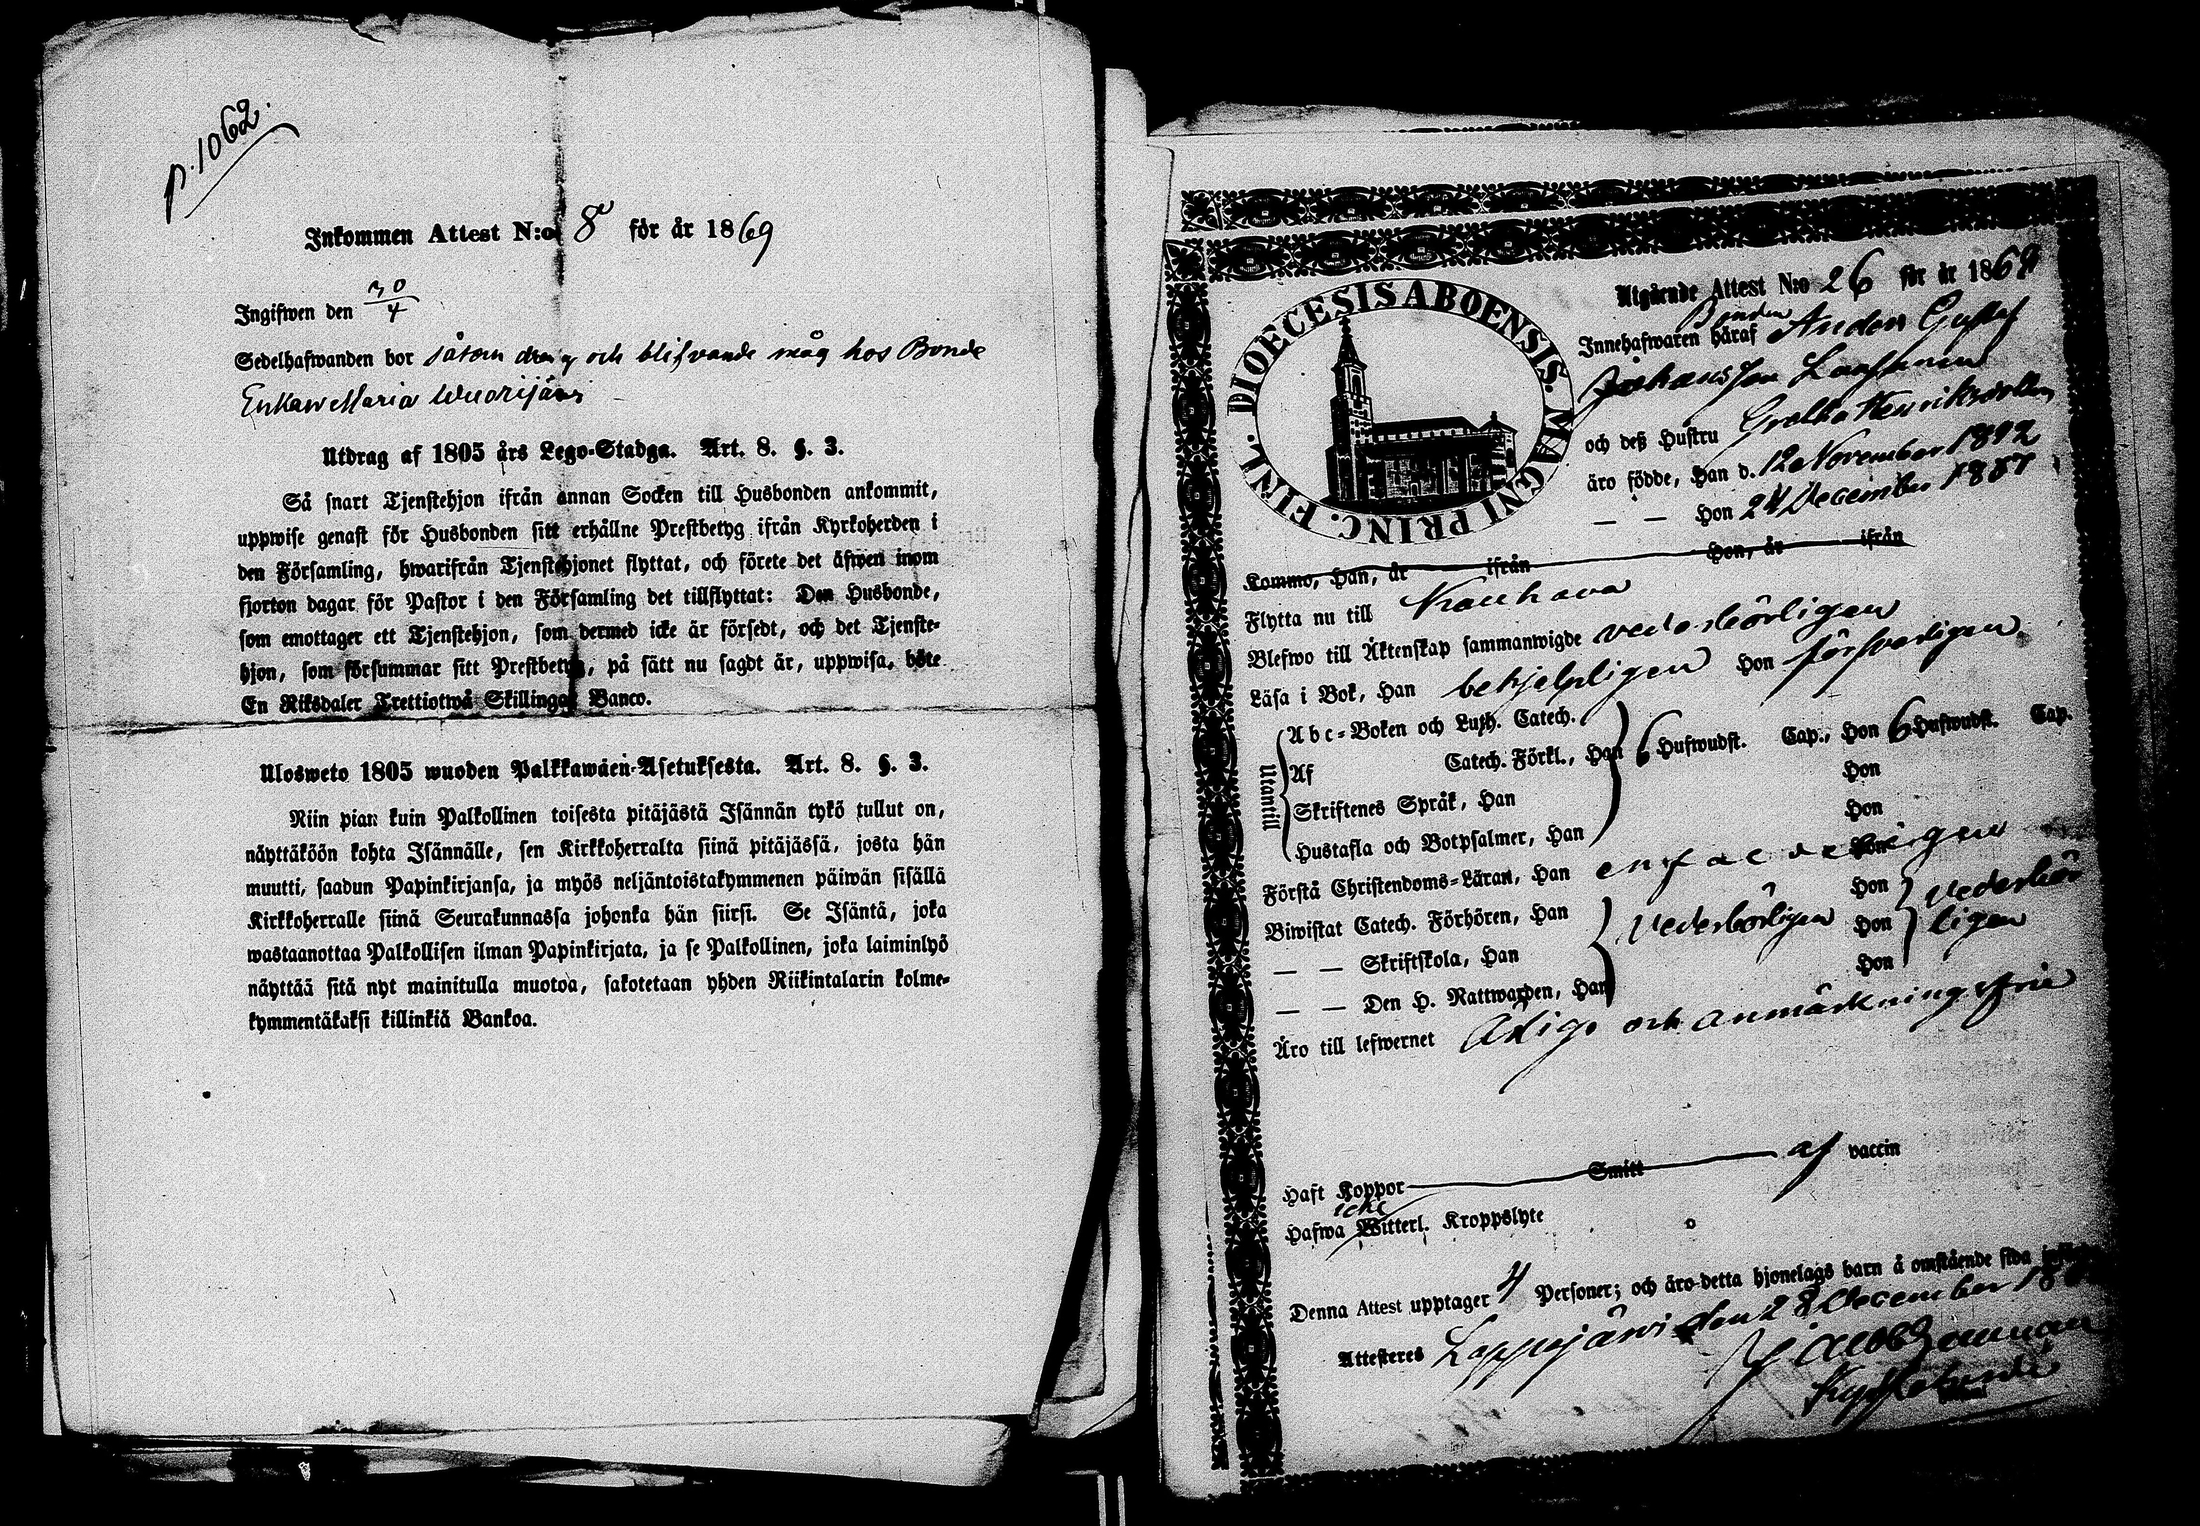 p. 1062.
Inkommen Attest N:o 8 för år 1869
Ingifwen den 30/4
Sedelhafwanden bor såsom dreng och blifvande måg hos Bonde
Enkan Maria Wuorijärvi
Utdrag af 1805 års Lego-Stadga. Art. 8. §. 3.
Så snart Tjenstehjon ifrån annan Socken till Husbonden ankommit,
uppwise genast för Husbonden sitt erhållne Prestbetyg ifrån Kyrkoherden i
den Församling, hwarifrån Tjenstehjonet flyttat, och förete det äfwen inom
fjorton dagar för Pastor i den Församling det tillflyttat: Den Husbonde,
som emottager ett Tjenstehjon, som dermed icke är försedt, och det Tjenste-
hjon, som försummar sitt Prestbetyg, på sätt nu sagdt är, uppwisa, böte
En Riksdaler Trettiotwå Skillingar Banco.
Ulosweto 1805 wuoden Palkkawäen-Asetuksesta. Art. 8. §. 3.
Niin pian kuin Palkollinen toisesta pitäjästä Isännän tykö tullut on,
näyttäköön kohta Isännälle, sen Kirkkoherralta siinä pitäjässä, josta hän
muutti, saadun Papinkirjansa, ja myös neljäntoistakymmenen päiwän sisällä
Kirkkoherralle siinä Seurakunnassa johonka hän siirsi. Se Isäntä, joka
wastaanottaa Palkollisen ilman Papinkirjata, ja se Palkollinen, joka laiminlyö
näyttää sitä nyt mainitulla muotoa, sakotetaan yhden Riikintalarin kolme-
kymmentäkaksi killinkiä Bankoa.
DIOECESIS ABOENSIS. MAGNI PRINC. FINL.
Utgående Attest N:o 26 för år 186
Bonden
Innehafwaren häraf Anders Gustaf
Johansson
och deß Hustru Greta Henriksdotter
äro födde, Han d. 12 November 18
— — Hon 24 December 18
Kommo, Han, år ifrån Hon, år ifrån
Flytta nu till Kauhava
Blefwo till Äktenskap sammanwigde vederbörligen
Läsa i Bok, Han behjelpligen Hon försvarligen
Utantill
Abc-Boken och Luth. Catech.
Af Catech. Förkl., Han 6 Hufwudst. Cap., Hon 6 Hufwudst. Cap.
Skriftenes Språk, Han Hon
Hustafla och Botpsalmer, Han Hon
Förstå Christendoms-Läran, Han enfaldeligen Hon
Biwistat Catech. Förhören, Han vederbörligen Hon vederbör
— — Skriftskola, Han Hon ligen
— — Den H. Nattwarden, Han Hon
Äro till lefwernet ärliga och anmärkningsfria
Haft Koppor Smitt af vaccin
icke
Hafwa Witterl. Kroppslyte
Denna Attest upptager 4 Personer; och äro detta hjonelags barn å omstående sida
Attesteres Lappajärvi den 28 December 18